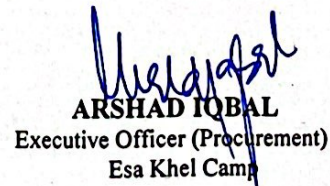 ARSHAD IQBAL
Executive Officer (Procurement)
Esa Khel Camp